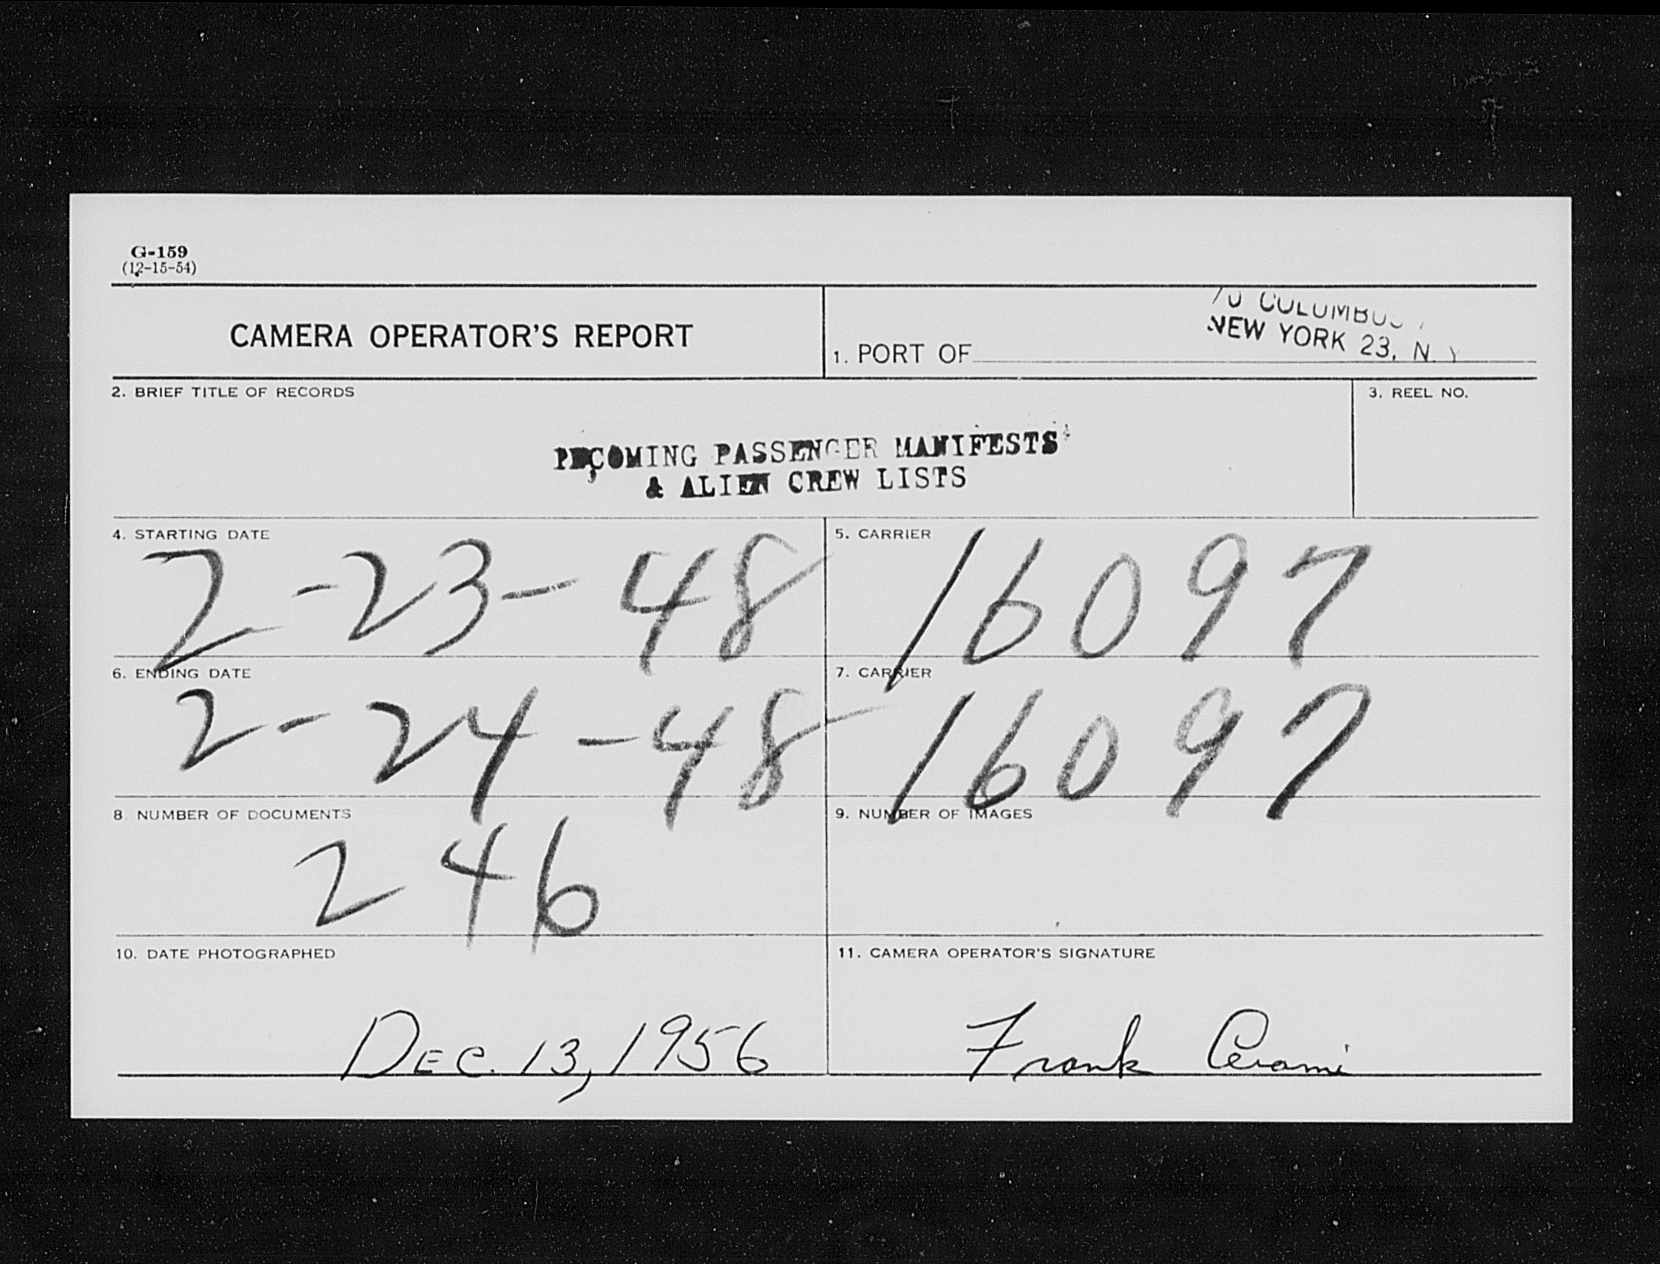 G-159
(12-15-54)
CAMERA OPERATOR'S REPORT
1. PORT OF
70 COLUMBUS
NEW YORK 23, N. Y
2. BRIEF TITLE OF RECORDS
3. REEL NO.
INCOMING PASSENGER MANIFESTS
& ALIEN CREW LISTS
4. STARTING DATE
2-23-48
5. CARRIER
16097
6. ENDING DATE
2-24-48
7. CARRIER
16097
8 NUMBER OF DOCUMENTS
246
9. NUMBER OF IMAGES
10. DATE PHOTOGRAPHED
DEC. 13, 1956
11. CAMERA OPERATOR'S SIGNATURE
Frank Cerami